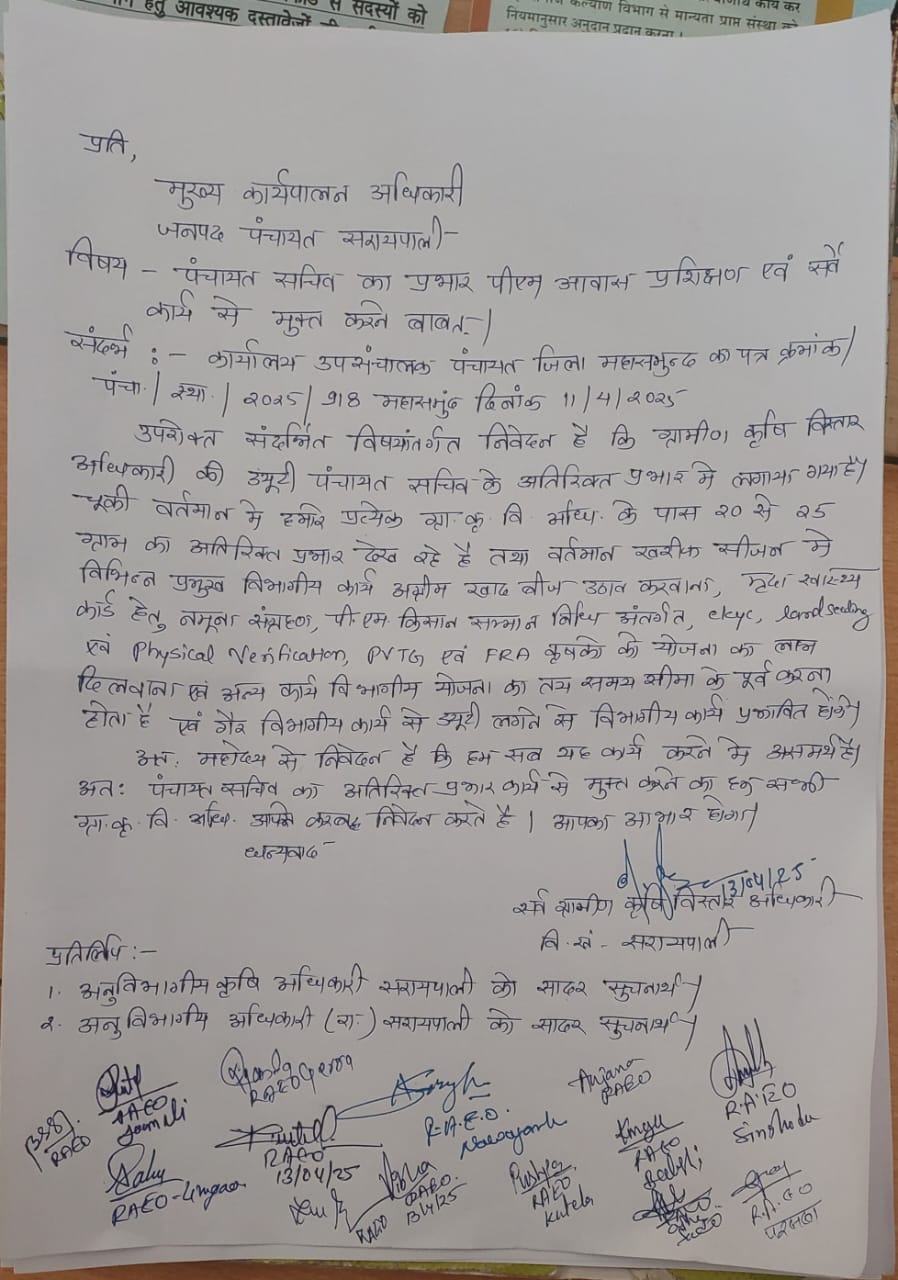 हेतु आवश्यक दस्तावेजों
से सदस्यों को
कल्याण विभाग से मान्यता प्राप्त संस्था को
नियमानुसार अनुदान प्रदान करना।
प्रति,
मुख्य कार्यपालन अधिकारी
जनपद पंचायत सरायपाली
विषय - पंचायत सचिव का प्रभार पीएम आवास प्रशिक्षण एवं सर्वे
कार्य से मुक्त करने बाबत्।
संदर्भ :- कार्यालय उपसंचालक पंचायत जिला महासमुन्द का पत्र क्रमांक/
पंचा./स्था./२०२५/918 महासमुंद दिनांक 11/4/२०२५
उपरोक्त संदर्भित विषयांतर्गत निवेदन है कि ग्रामीण कृषि विस्तार
अधिकारी की ड्यूटी पंचायत सचिव के अतिरिक्त प्रभार मे लगाया गया है।
चूकी वर्तमान मे हमारे प्रत्येक ग्रा. कृ. वि. अधि. के पास २० से २५
ग्राम का अतिरिक्त प्रभार देख रहे है तथा वर्तमान खरीफ सीजन मे
विभिन्न प्रमुख विभागीय कार्य अग्रीम खाद बीज उठाव करवाना, मृदा स्वास्थ्य
कार्ड हेतु नमूना संग्रहण, पी.एम. किसान सम्मान निधि अंतर्गत, ekyc, land seeding
एवं Physical Verification, PVTG एवं FRA कृषको को योजना का लाभ
दिलवाना एवं अन्य कार्य विभागीय योजना का तय समय सीमा के पूर्व करना
होता है एवं गैर विभागीय कार्य से ड्यूटी लगने से विभागीय कार्य प्रभावित होंगे।
अतः महोदय से निवेदन है कि हम सब यह कार्य करने मे असमर्थ है।
अतः पंचायत सचिव का अतिरिक्त प्रभार कार्य से मुक्त करने का हम सभी
ग्रा. कृ. वि. अधि. आपसे करबद्ध निवेदन करते है। आपका आभार होगा।
धन्यवाद
13/04/25
सर्व ग्रामीण कृषि विस्तार अधिकारी
वि. खं. - सरायपाली
प्रतिलिपि :-
१. अनुविभागीय कृषि अधिकारी सरायपाली को सादर सूचनार्थ।
२. अनुविभागीय अधिकारी (रा.) सरायपाली को सादर सूचनार्थ।
RAEO
RAEO
RAEO
Anjana
RAEO
R.A.E.O
Singhoda
R.A.E.O.
RAEO
13/04/25
Sahu
RAEO
RAEO
RAEO
13/4/25
Pushpa
RAEO
Kutela
RAEO
R.A.E.O